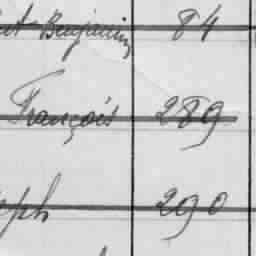 Benjamin 84
François 289
eph 290